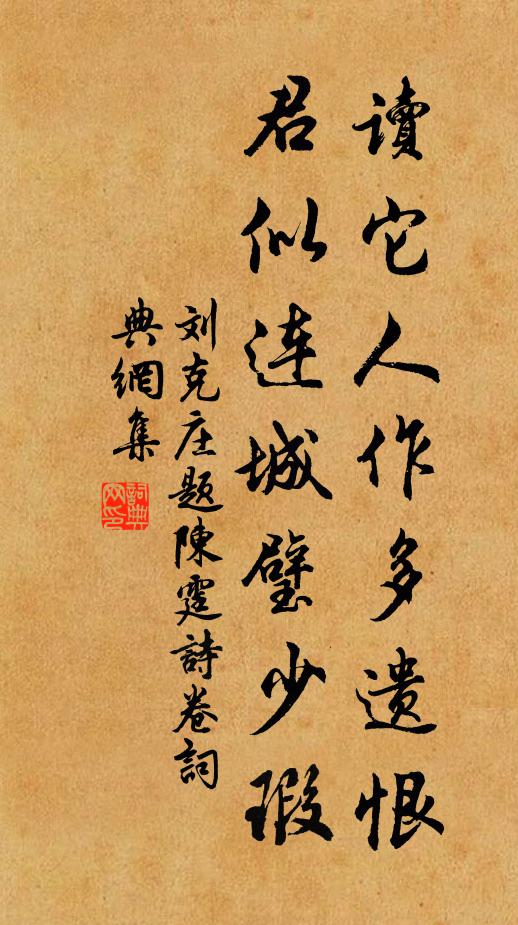 讀它人作多遗恨
君似連城璧少瑕
刘克庄题陳霆詩卷詞
典網集
詞典
网印